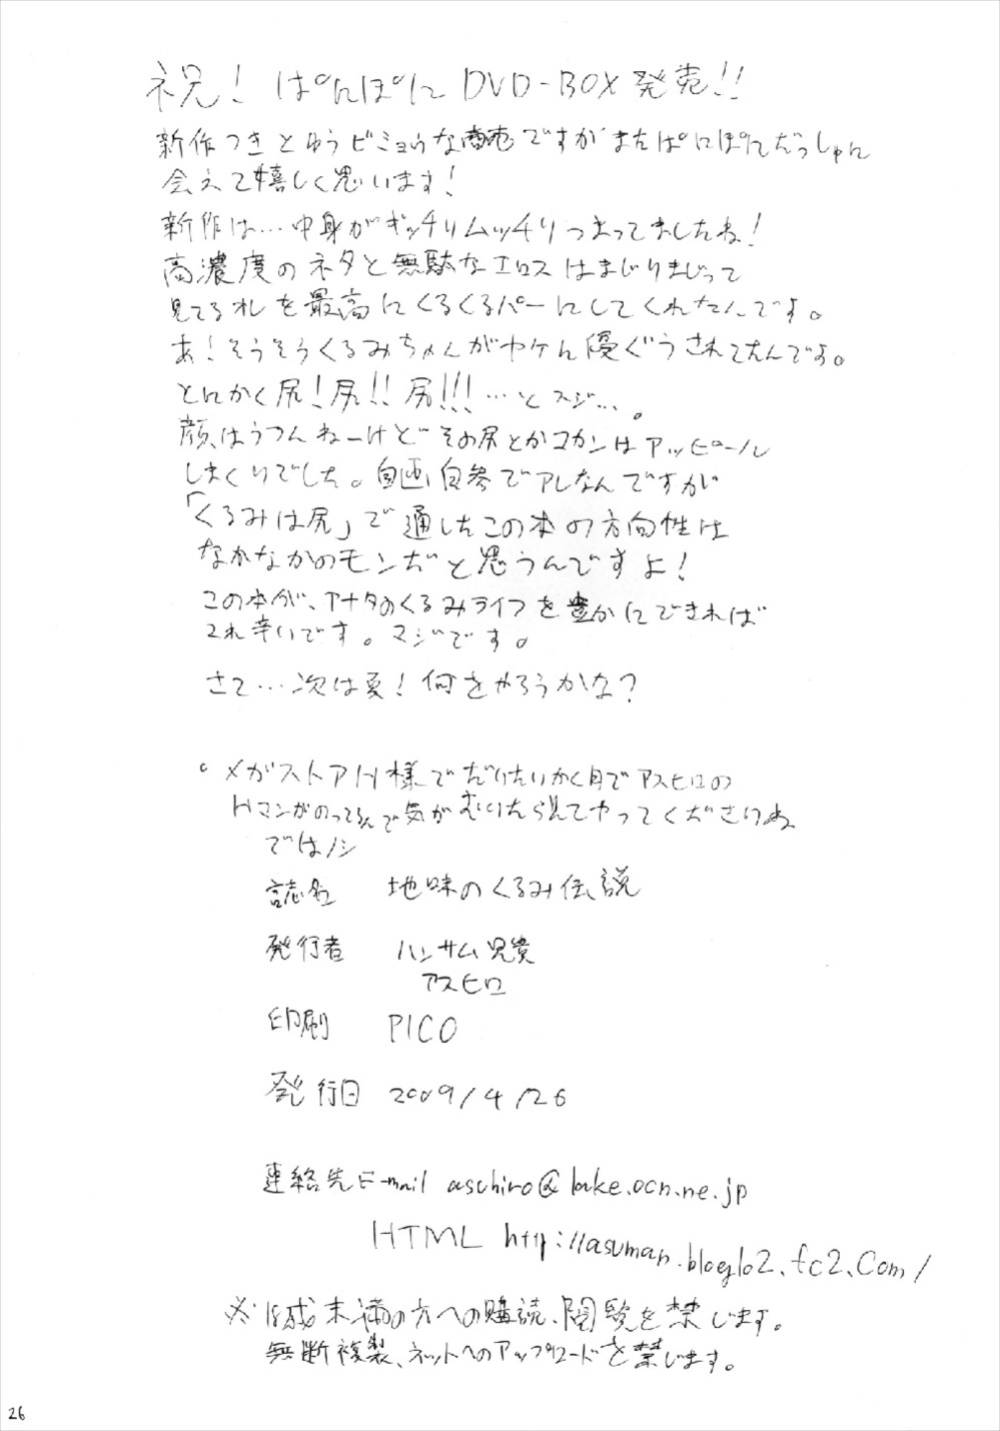 祝！ ぱんぽに DVD-BOX発売!!
新作つきとゆうビミョウな商売ですがまたぱにぽにだっしゅに
会えて嬉しく思います！
新作は…中身がギッチリムッチリつまってましたね！
高濃度のネタと無駄なエロスはまじりまじって
見てるオレを最高にくるくるパーにしてくれたんです。
あ！そうそうくるみちゃんがヤケに優ぐうされてたんですよ。
とにかく尻！尻!!尻!!!…とスジ…。
顔はうつんねーけどその尻とかコカンはアッピール
しまくりでした。自画自参でアレなんですが
「くるみは尻」で通したこの本の方向性は
なかなかのモンだと思うんですよ！
この本が、アナタのくるみライフを豊かにできれば
これ幸いです。マジです。
さて…次は夏！何をやろうかな？
。メガストアH様でだいたいかく月でアスヒロの
Hマンガのってるんで気がむいたら見てやってくださいね
ではノシ
誌名 地味のくるみ伝説
発行者 ハンサム兄貴
アスヒロ
印刷 PICO
発行日 2009/4/26
連絡先 E-mail aschiro@lake.ocn.ne.jp
HTML http://asuman.blog102.fc2.com/
※18歳未満の方への購読、閲覧を禁じます。
無断複製、ネットへのアップロードを禁じます。
26